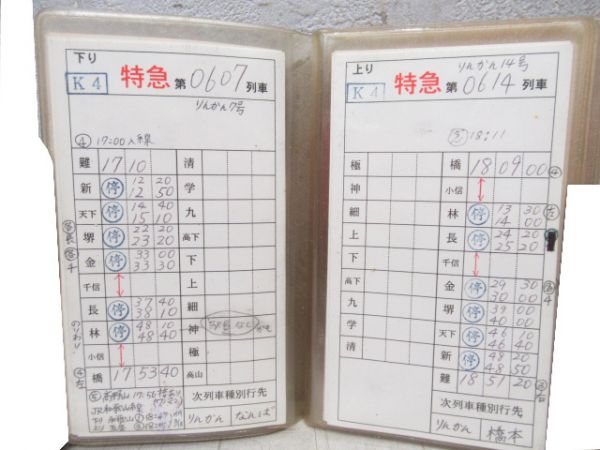 下り
K4 特急 第0607列車
りんかん7号
④ 17:00入線
難 17 10 清
新 停 12 20 12 50 学
天下 停 14 40 15 10 九
堺 停 22 20 23 20 高下
金 停 33 00 33 30 下
千信 上
長 停 37 40 38 10 細
林 停 48 10 48 40 神
小信 極
橋 17 53 40 高山
のりかえ
次列車種別行先
りんかん なんば
上り
りんかん14号
K4 特急 第0614列車
18:11
極 橋 18 09 00
神 小信
細 林 停 13 30 14 00
上 長 停 24 20 25 20
下 千信
高下 金 停 29 30 30 00
九 堺 停 39 00 40 00
学 天下 停 46 10 46 40
清 新 停 48 20 48 50
難 18 51 20
次列車種別行先
りんかん 橋本